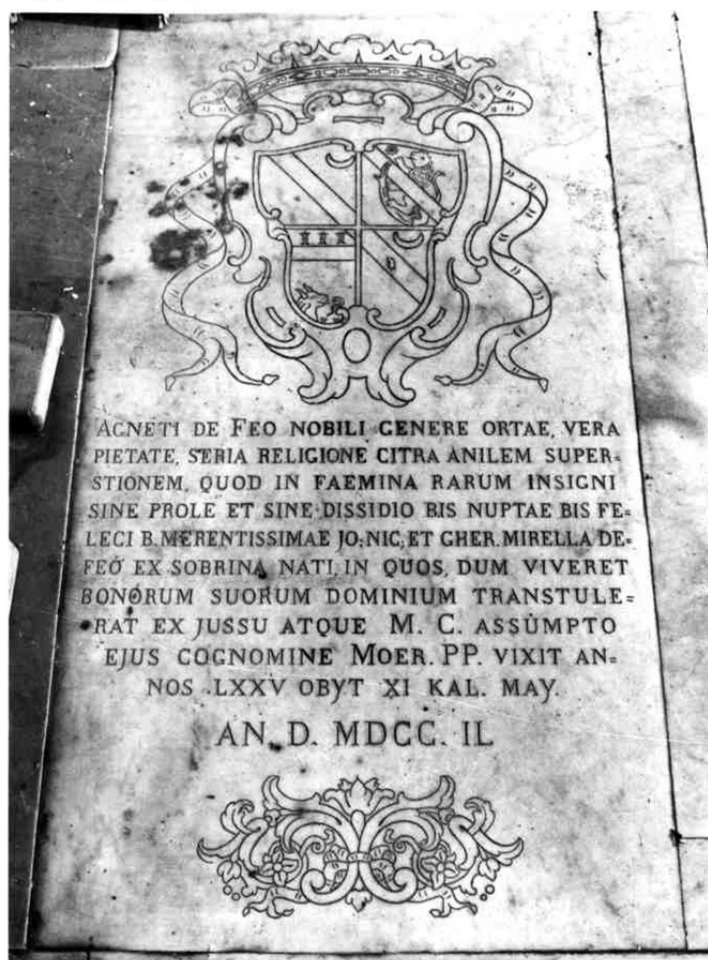 AGNETI DE FEO NOBILI GENERE ORTAE, VERA
PIETATE, SERIA RELIGIONE CITRA ANILEM SUPER=
STIONEM, QUOD IN FAEMINA RARUM INSIGNI
SINE PROLE ET SINE DISSIDIO BIS NUPTAE BIS FE=
LECI B. MERENTISSIMAE JO: NIC; ET GHER. MIRELLA DE=
FEO EX SOBRINA NATI, IN QUOS, DUM VIVERET
BONORUM SUORUM DOMINIUM TRANSTULE=
RAT EX JUSSU ATQUE M. C. ASSUMPTO
EJUS COGNOMINE MOER. PP. VIXIT AN=
NOS LXXV OBYT XI KAL. MAY.
AN. D. MDCC. IL